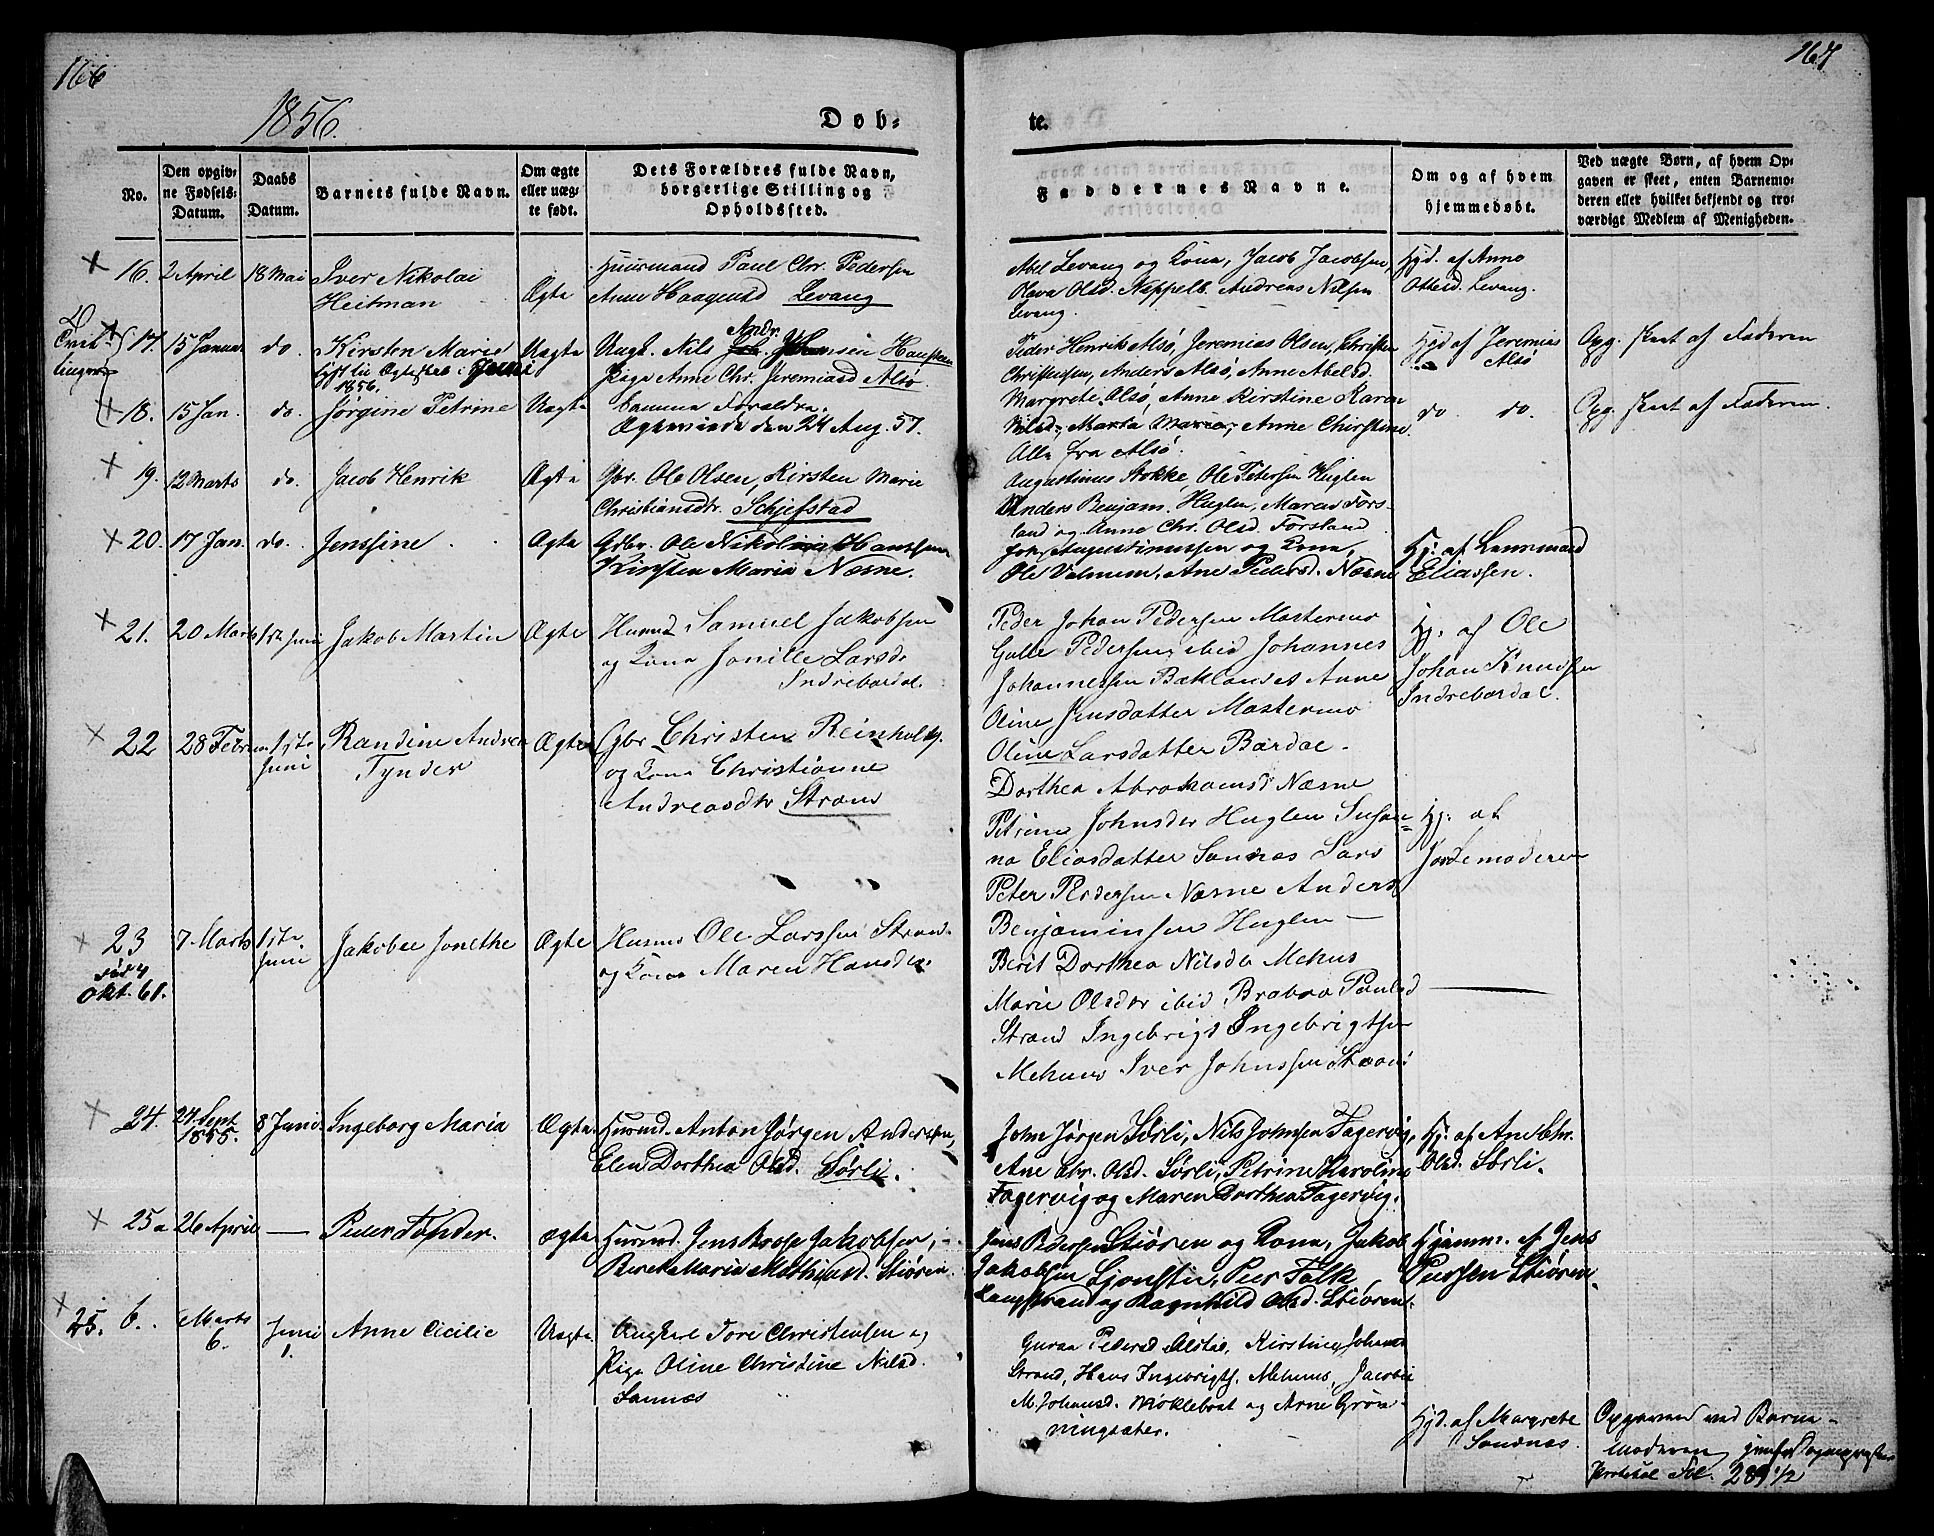 166
167
1856.
Døb-
te.
No.
Den opgiv-
ne Fødsels-
Datum.
Daabs
Datum.
Barnets fulde Navn.
Om ægte
eller uæg-
te født.
Dets Forældres fulde Navn,
borgerlige Stilling og
Opholdssted.
Faddernes Navne.
Om og af hvem
hjemmedøbt.
Ved uægte Børn, af hvem Op-
gaven er skeet, enten Barnemo-
deren eller hvilket bekjendt og tro-
værdigt Medlem af Menigheden.
16. 2 April 18 Mai Iver Nikolai
Heitman
Ægte
Huusmand Paul Chr. Pedersen
Anne Haagensd Levang
Abel Levang og Kona, Jacob Jacobsen,
Olava Olsd. Neppelb. Andreas Nilsen
Levang.
Hjd. af Anne
Ottesd. Levang.
Tvil-
linger
17. 15 Januar do. Kirsten Marie
lyst til Ægteskab i Juni
1856.
Uægte
Ungk. Nils Andr. Johansen Haustein
Pige Anne Chr. Jeremiasd Alsø.
Peder Henrik Alsø, Jeremias Olsen, Christen
Christensen, Anders Alsø, Anne Abelsd.
Hjd af Jeremias
Alsø
Opg. skeet af Faderen
18. 15 Jan. do. Jørgine Petrine Uægte
Samme Forældre.
Ægteviede den 24 Aug. 57.
Margrete Alsø, Anne Kirstine Karen
Nilsd., Marta Maria, Anne Christine.
Alle fra Alsø.
do. do.
Opg. skeet af Faderen.
19. 12 Marts do. Jacob Henrik Ægte
Gbr. Ole Olsen, Kirsten Marie
Christiansdr. Schjefstad
Augustinus Stokke, Ole Petersen Huglen
Anders Benjam. Huglen, Maren Fors-
land og Anne Chr. Olsd. Forsland
20. 17 Jan. do. Jensine Ægte
Gdbr. Ole Nikolai Hanssen
Kirsten Maria Næsne.
Johs Augustinussen og Kona,
Ole Valmum, Ane Pedersd. Næsne
Hj. af Lennsmand
Eliassen.
21. 20 Marts 1ste Juni Jakob Martin Ægte
Husmd Samuel Jakobsen
og Kona Jonille Larsdr
Indrebardal.
Peder Johan Pedersen Mastermo
Golle Pedersen ibid Johannes
Johannessen Baklandet Anne
Oline Jensdatter Mastermo
Oline Larsdatter Bardal.
Hj. af Ole
Johan Knudsen
Indrebardal.
22 28 Februar 1ste
Juni
Randine Andrea
Tynder
Ægte
Gbr Christen Reinholts.
og Kona Christianne
Andreasdtr Strand
Dorthea Abrahamsd Næsne
Petrine Johnsder Huglen Susan-
na Eliasdatter Sannes Lars
Peter Pedersen Næsne Anders
Benjaminsen Huglen —
Hj. af
Jordemoderen
23
død 4
Okt. 61.
7 Marts 1ste
Juni
Jakobee Jonethe Ægte
Husmd Ole Larssen Strand
og Kona Maren Hansdr.
Berit Dorthea Nilsdr Mehus
Marie Olsdtr ibid Brabra Paulsd
Strand Ingebrigt Ingebrigtsen
Mehuus Iver Johnssen Strand
24. 24 Sept
1855.
8 Juni Ingeborg Maria Ægte
Husmd. Anton Jørgen Andersen,
Elen Dorthea Olsd. Sørli.
John Jørgen Sørli, Nils Johnsen Fagervig,
Ane Chr. Olsd. Sørli, Petrine Karoline
Fagervig og Maren Dorthea Fagervig.
Hj. af Ane Chr.
Olsd. Sørli.
25a 26 April — Peder Tønder. Ægte
Husmd. Jens Roosp Jakobsen,
Beret Maria Mathiasd. Stiøren.
Jens Pedersen Stiøren og Kona, Jakob
Jakobsen Ljonsli, Peer Falk
Langstrand og Ragnhild Olsd. Stiøren.
Hjemmr. af Jens
Pedersen Stiøren.
25. b. Marts
6.
Juni
1.
Anne Cicilie Uægte
Ungkarl Tore Christensen og
Pige Oline Christine Nilsd.
Sannæs
Guraa Pedersd Alstad, Kirstine Johansd
Strand, Hans Ingebrigts. Mehuus, Jacobie
M. Johansd. Møklebost og Arne Grøn-
ningsæter.
Hjd. af Margrete
Sandnæs.
Opgaven ved Barne-
moderen,
Protokol Fol. 289 1/2